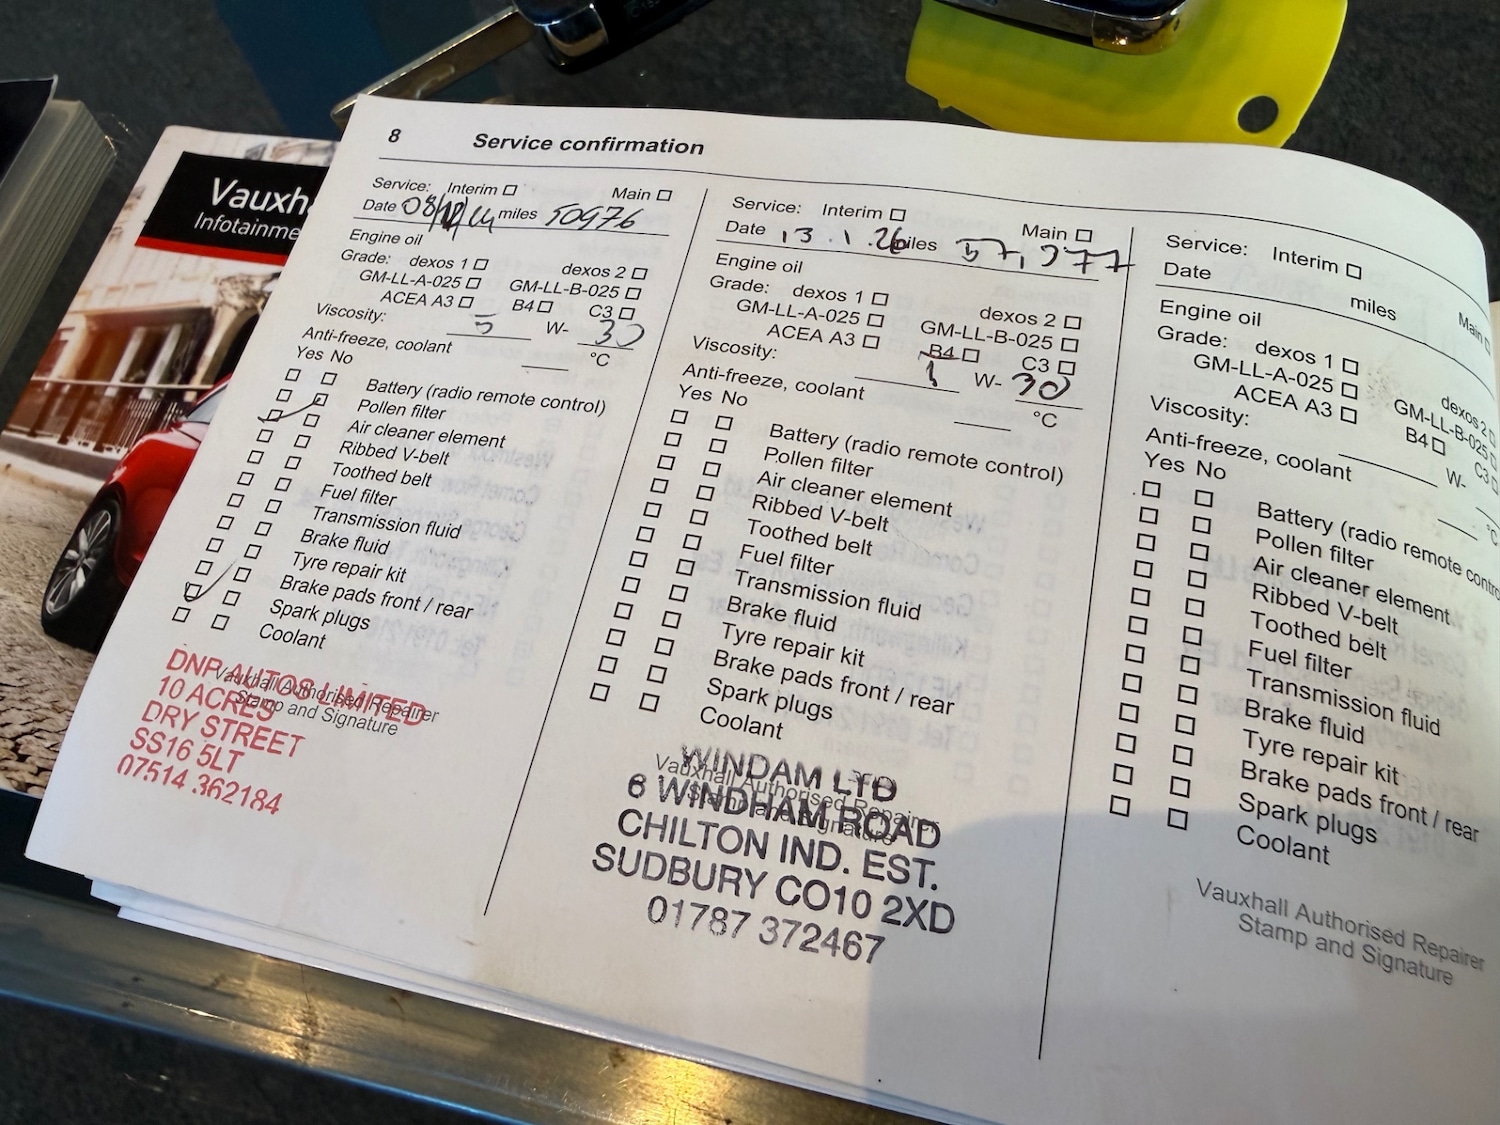 Vauxh
Infotainme
8 Service confirmation
Service: Interim ☐ Main ☐
Date miles 50976
Engine oil
Grade: dexos 1 ☐ dexos 2 ☐
GM-LL-A-025 ☐ GM-LL-B-025 ☐
ACEA A3 ☐ B4 ☐ C3 ☐
Viscosity: 5 W- 30
Anti-freeze, coolant °C
Yes No
Battery (radio remote control)
Pollen filter
Air cleaner element
Ribbed V-belt
Toothed belt
Fuel filter
Transmission fluid
Brake fluid
Tyre repair kit
Brake pads front / rear
Spark plugs
Coolant
Vauxhall Authorised Repairer
Stamp and Signature
DNP AUTOS LIMITED
10 ACRES
DRY STREET
SS16 5LT
07514 362184
Service: Interim ☐ Main ☐
Date 13.1.26 miles
Engine oil
Grade: dexos 1 ☐ dexos 2 ☐
GM-LL-A-025 ☐ GM-LL-B-025 ☐
ACEA A3 ☐ B4 ☐ C3 ☐
Viscosity: W- 30
Anti-freeze, coolant °C
Yes No
Battery (radio remote control)
Pollen filter
Air cleaner element
Ribbed V-belt
Toothed belt
Fuel filter
Transmission fluid
Brake fluid
Tyre repair kit
Brake pads front / rear
Spark plugs
Coolant
Vauxhall Authorised Repairer
Stamp and Signature
WINDAM LTD
6 WINDHAM ROAD
CHILTON IND. EST.
SUDBURY CO10 2XD
01787 372467
Service: Interim ☐ Main ☐
Date miles
Engine oil
Grade: dexos 1 ☐ dexos 2 ☐
GM-LL-A-025 ☐ GM-LL-B-025
ACEA A3 ☐ B4 ☐ C3 ☐
Viscosity: W-
Anti-freeze, coolant °C
Yes No
Battery (radio remote contro
Pollen filter
Air cleaner element
Ribbed V-belt
Toothed belt
Fuel filter
Transmission fluid
Brake fluid
Tyre repair kit
Brake pads front / rear
Spark plugs
Coolant
Vauxhall Authorised Repairer
Stamp and Signature